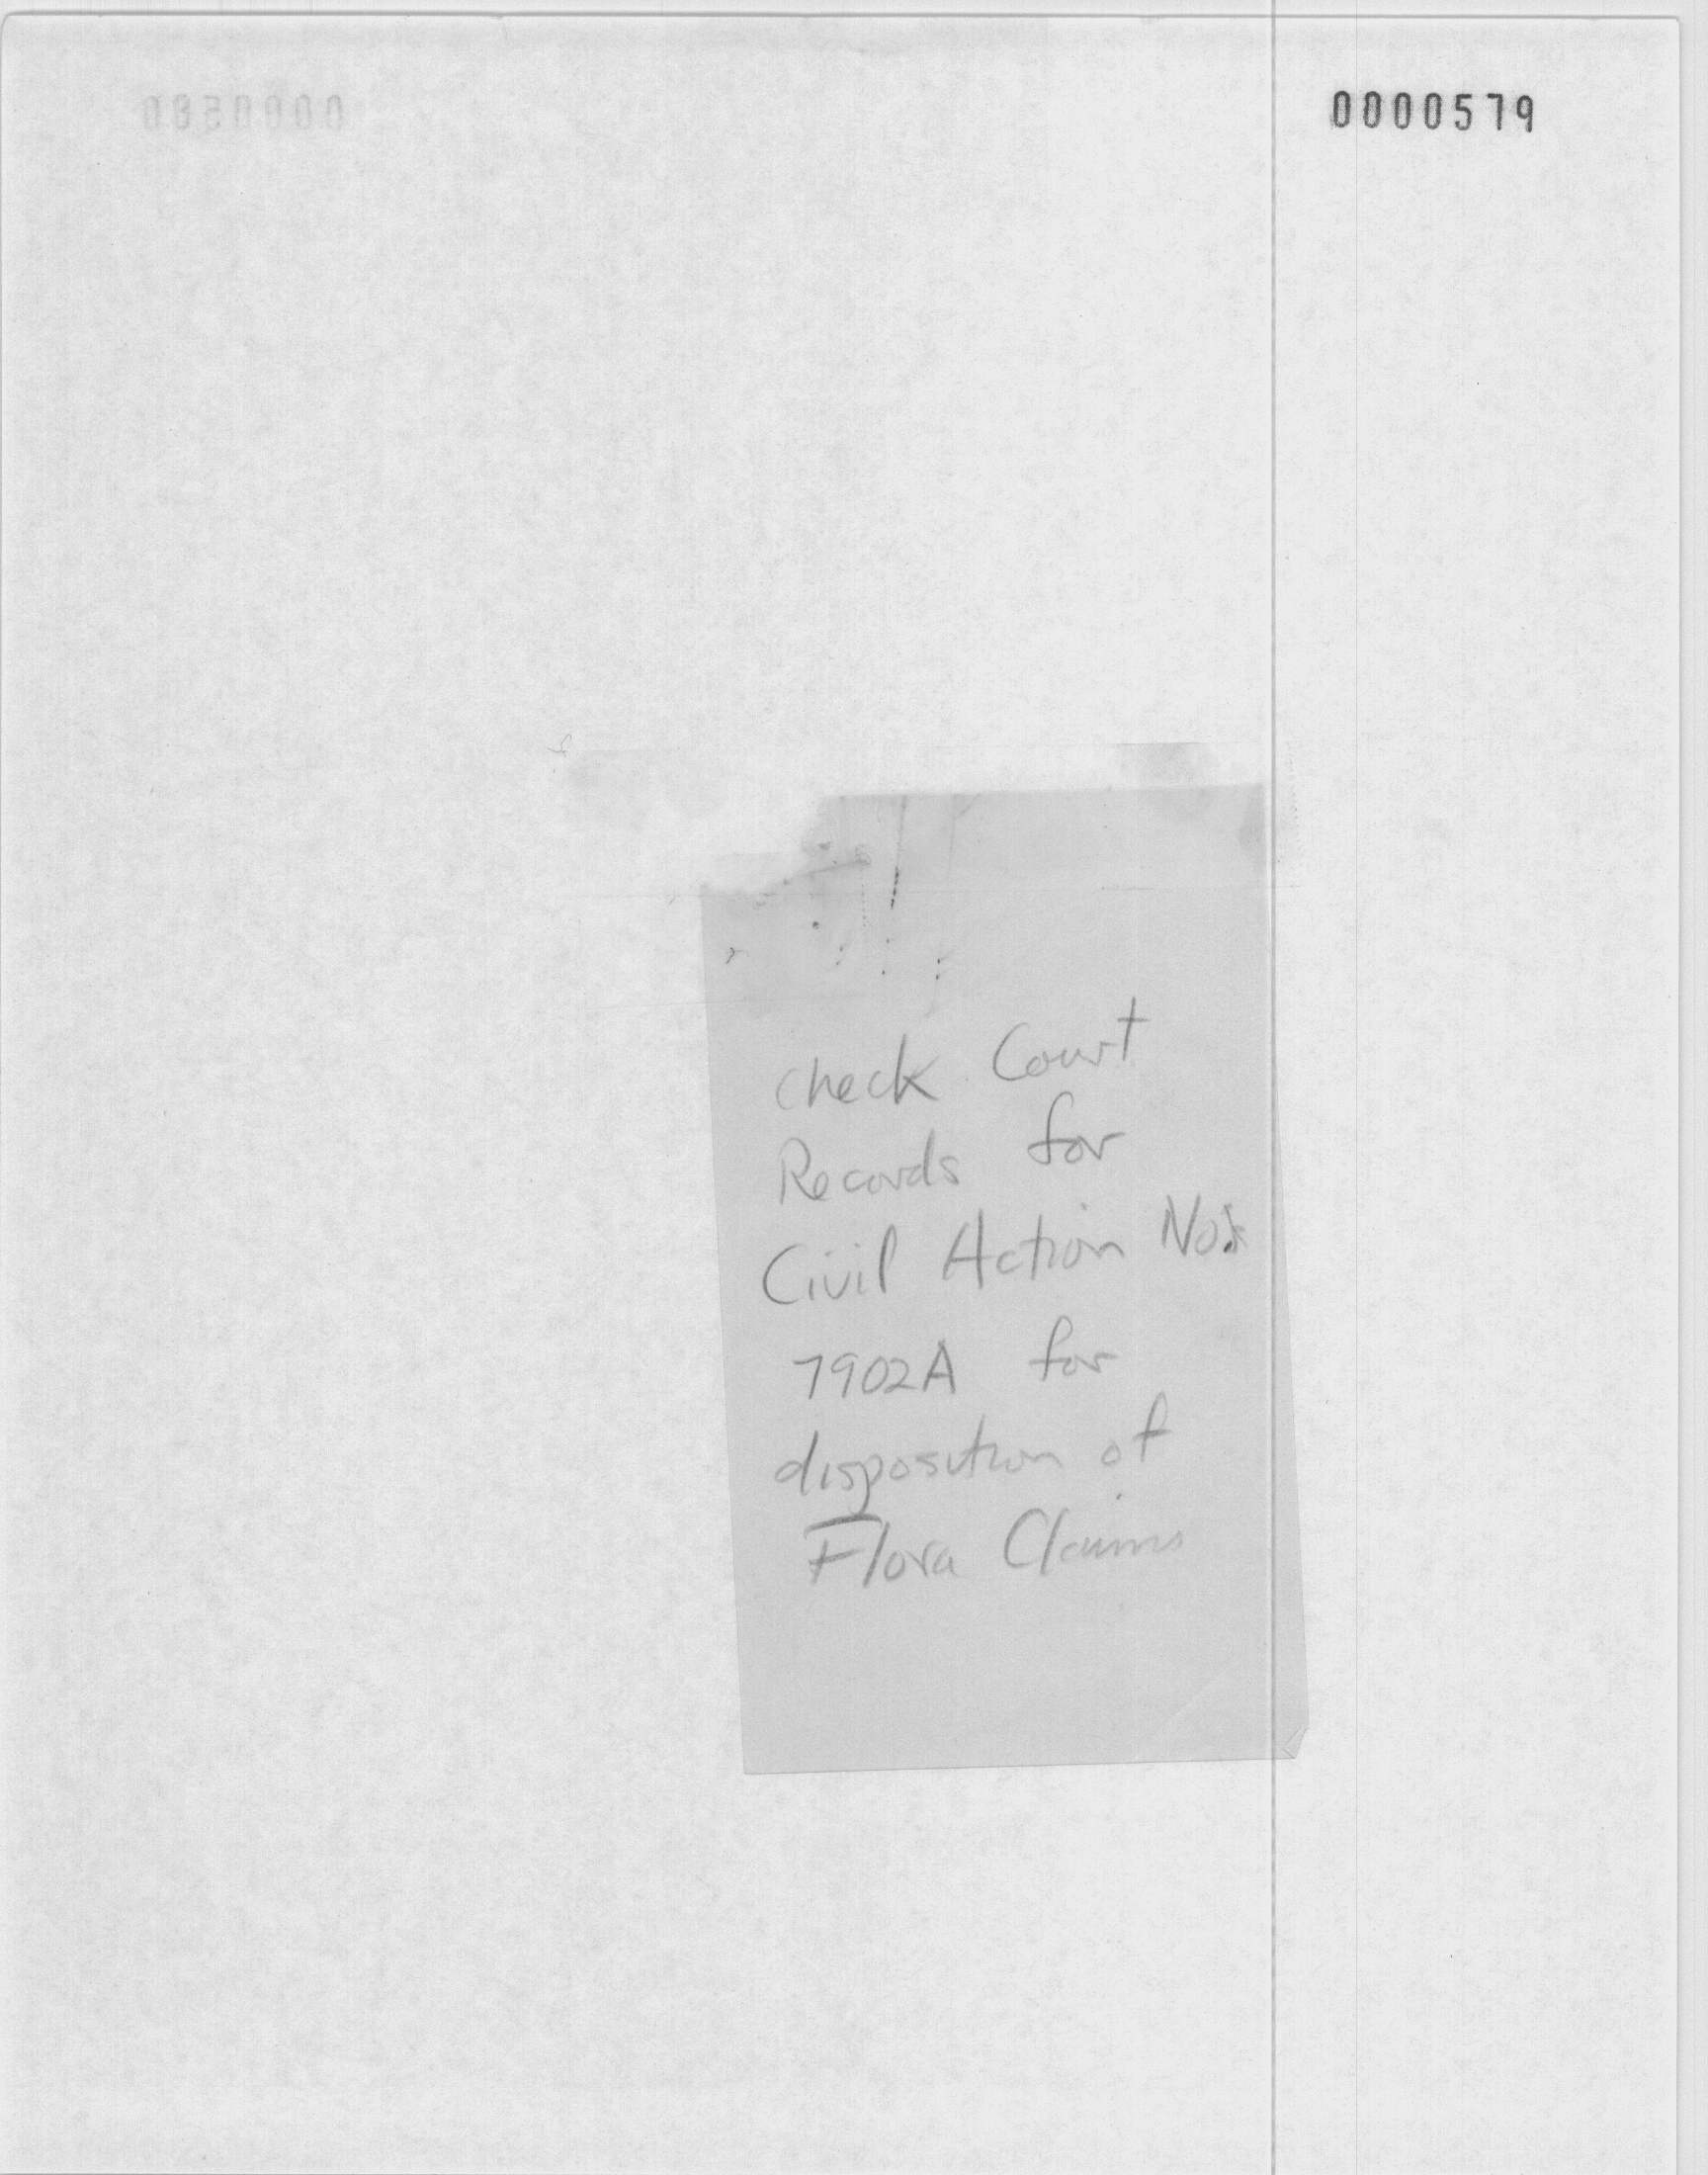 0000579
check Court
Records for
Civil Action No.
7902A for
disposition of
Flora Claims